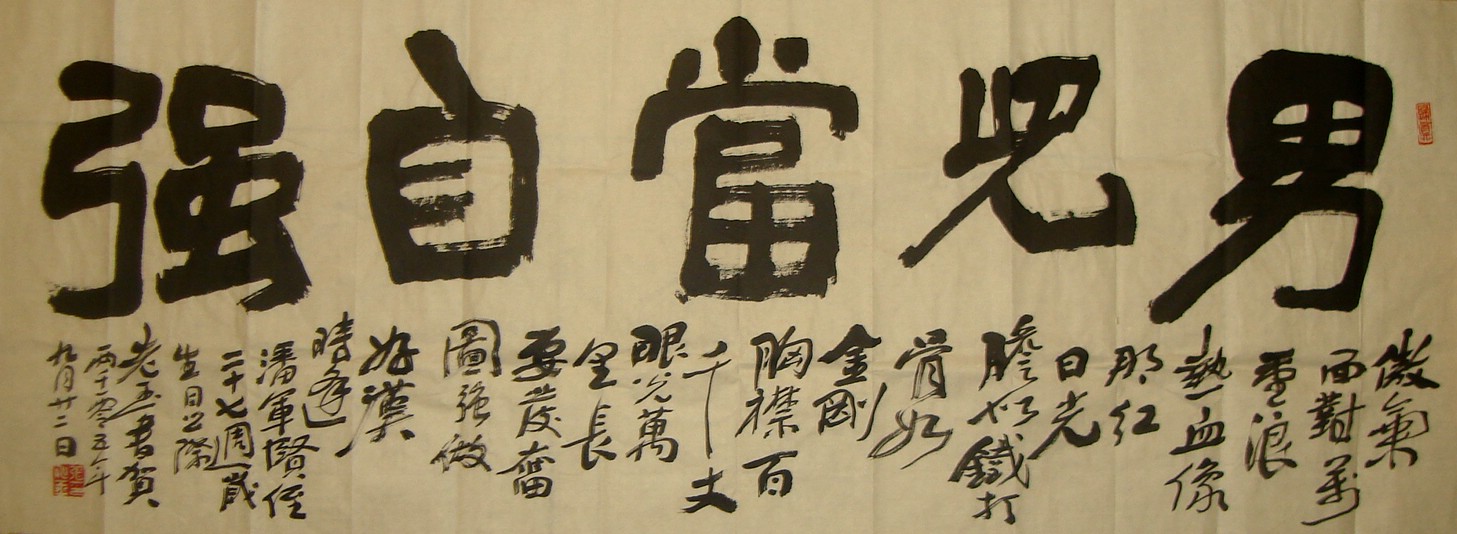 男兒當自强
傲氣
面對萬
重浪
熱血像
那紅
日光
膽似鐵打
骨如
金剛
胸襟百
千丈
眼光萬
里長
要發奮
圖强做
好漢
時逢
潘軍賢侄
二十七週歲
生日之際
書賀
零五年
九月廿二日